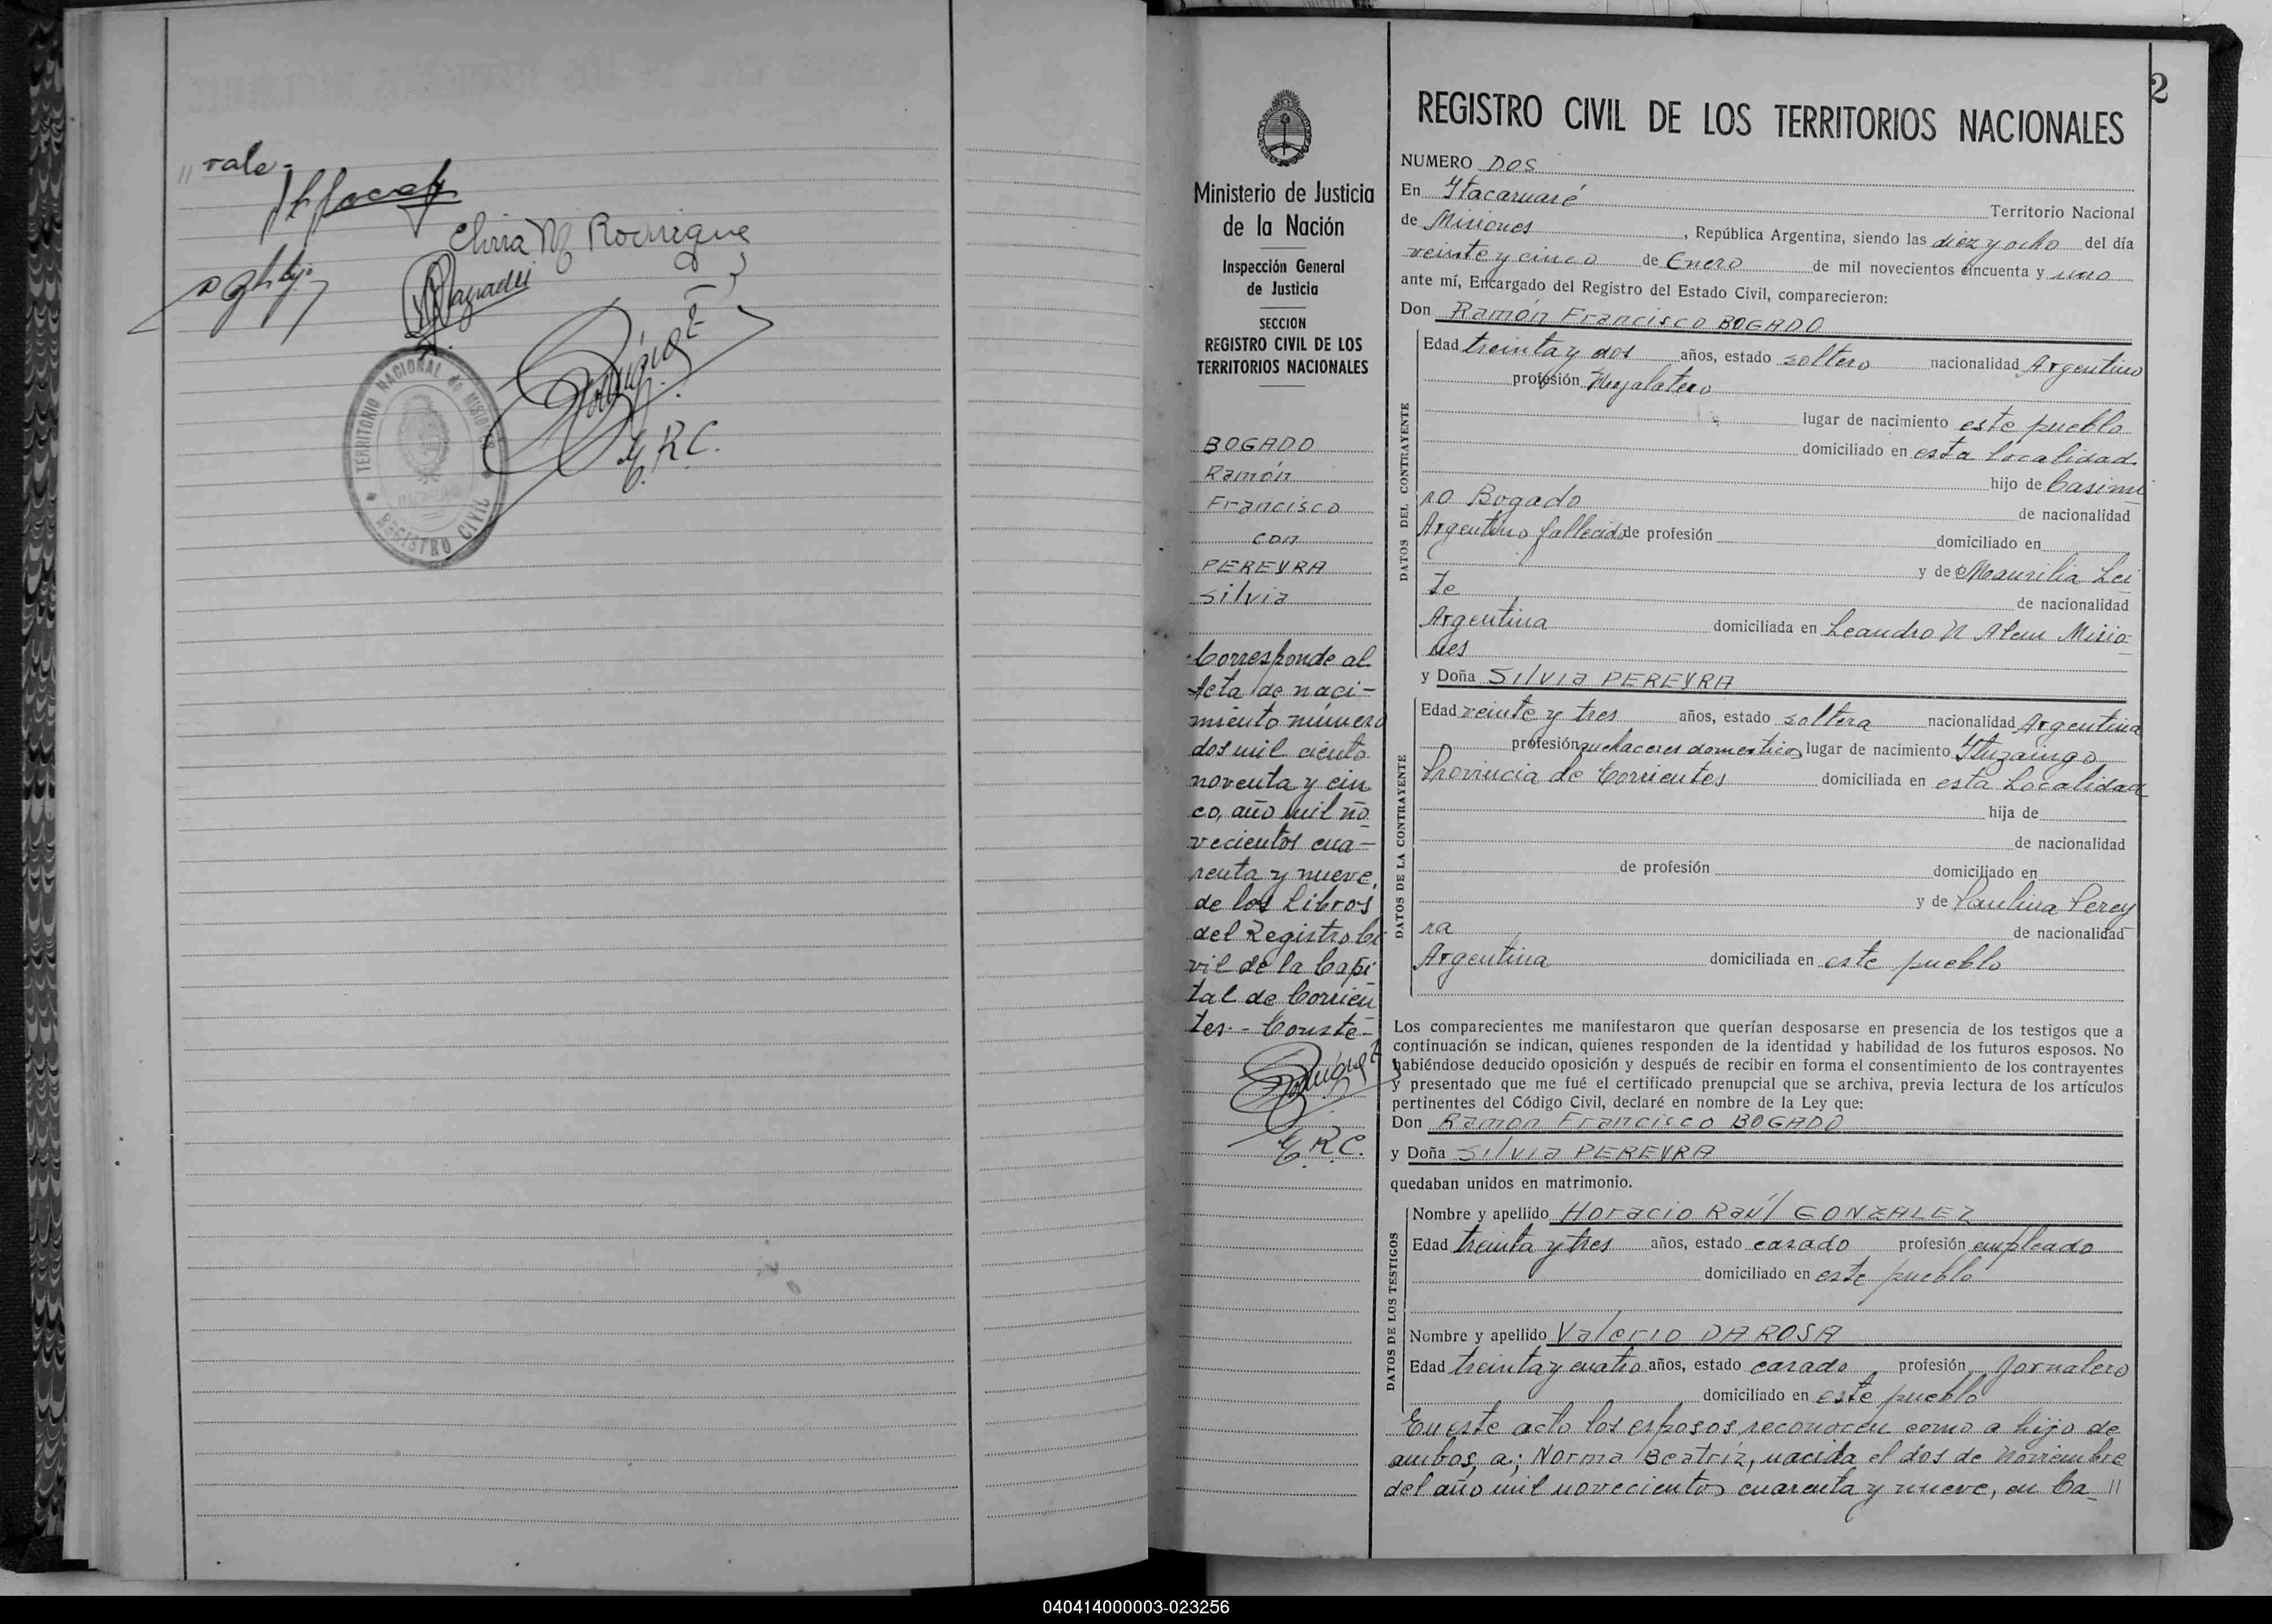 " vale-
Elvira M Rodrigue
z
Rodríguez
E.R.C.
TERRITORIO NACIONAL de MISIONES
REGISTRO CIVIL
2
Ministerio de Justicia
de la Nación
Inspección General
de Justicia
SECCION
REGISTRO CIVIL DE LOS
TERRITORIOS NACIONALES
BOGADO
Ramón
Francisco
con
PEREYRA
Silvia
Corresponde al
Acta de naci-
miento número
dos mil ciento
noventa y cin
co, año mil no
vecientos cua-
renta y nueve,
de los Libros
del Registro Ci
vil de la Capi
tal de Corrien
tes.- Conste-
Rodríguez
E.R.C.
REGISTRO CIVIL DE LOS TERRITORIOS NACIONALES
NUMERO DOS
En Itacaruaré Territorio Nacional
de Misiones, República Argentina, siendo las diez y ocho del día
veinte y cinco de Enero de mil novecientos cincuenta y uno
ante mí, Encargado del Registro del Estado Civil, comparecieron:
Don Ramón Francisco BOGADO
DATOS DEL CONTRAYENTE
Edad treinta y dos años, estado soltero nacionalidad Argentino
profesión Hojalatero
lugar de nacimiento este pueblo
domiciliado en esta localidad
hijo de Casimi
ro Bogado de nacionalidad
Argentino fallecido de profesión domiciliado en
y de Maurilia Lei
te de nacionalidad
Argentina domiciliada en Leandro N Alem Misio-
nes
y Doña Silvia PEREYRA
DATOS DE LA CONTRAYENTE
Edad veinte y tres años, estado soltera nacionalidad Argentina
profesión quehaceres domesticos lugar de nacimiento Ituzaingo
Provincia de Corrientes domiciliada en esta Localidad
hija de
de nacionalidad
de profesión domiciliado en
y de Paulina Perey
ra de nacionalidad
Argentina domiciliada en este pueblo
Los comparecientes me manifestaron que querían desposarse en presencia de los testigos que a
continuación se indican, quienes responden de la identidad y habilidad de los futuros esposos. No
habiéndose deducido oposición y después de recibir en forma el consentimiento de los contrayentes
y presentado que me fué el certificado prenupcial que se archiva, previa lectura de los artículos
pertinentes del Código Civil, declaré en nombre de la Ley que:
Don Ramon Francisco BOGADO
y Doña Silvia PEREYRA
quedaban unidos en matrimonio.
DATOS DE LOS TESTIGOS
Nombre y apellido Horacio Raúl GONZALEZ
Edad treinta y tres años, estado casado profesión empleado
domiciliado en este pueblo
Nombre y apellido Valerio DA ROSA
Edad treinta y cuatro años, estado casado, profesión Jornalero
domiciliado en este pueblo
En este acto los esposos reconocen como a hijo de
ambos, a; Norma Beatriz, nacida el dos de Noviembre
del año mil novecientos cuarenta y nueve, en Ca "
040414000003-023256